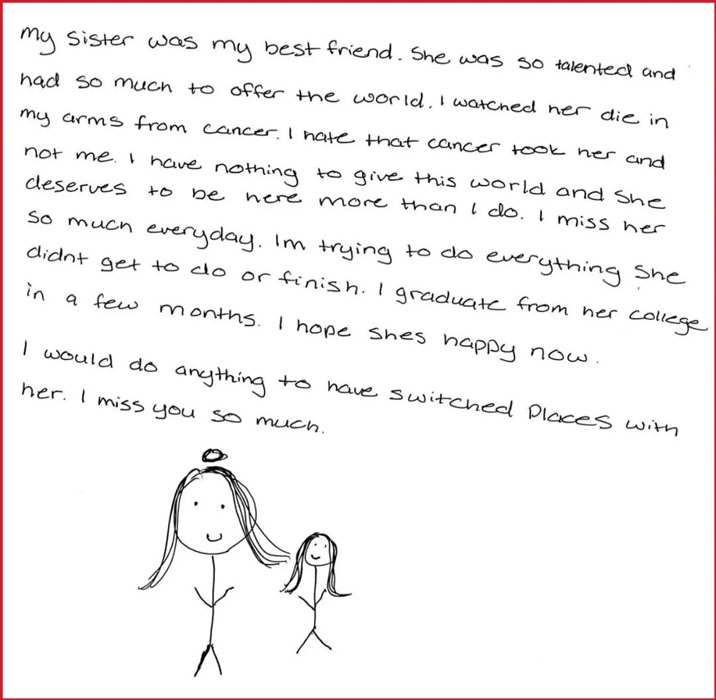 my sister was my best friend. She was so talented and
had so much to offer the world. I watched her die in
my arms from cancer. I hate that cancer took her and
not me. I have nothing to give this world and she
deserves to be here more than I do. I miss her
so much everyday. Im trying to do everything she
didnt get to do or finish. I graduate from her college
in a few months. I hope shes happy now.
I would do anything to have switched places with
her. I miss you so much.